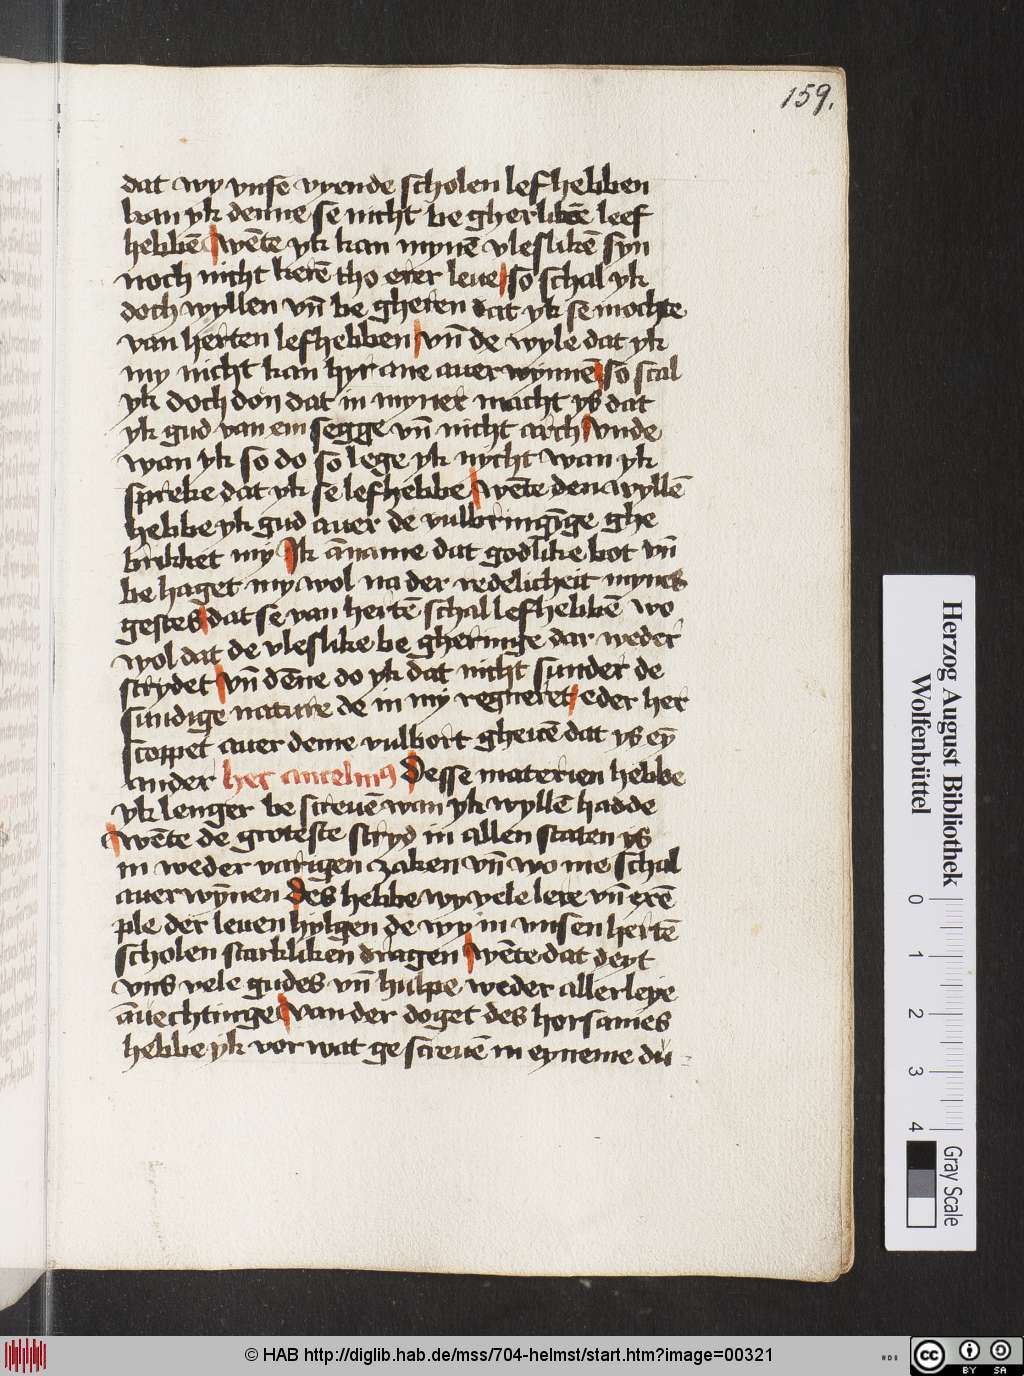 159.
dat wy vnse vyende scholen lefhebben
kan yk denne se nicht be gherlikē leef
hebbē wēte yk kan mynē vleslikē syn
noch nicht kerē tho erer leue so schal yk
doch wyllen vn̄ be gheren dat yk se mochte
van herten lefhebben vn̄ de wyle dat yk
my nicht kan hyr ane auer wynnē so scal
yk doch don dat in myner macht ys dat
yk gud van em segge vn̄ nicht arch vnde
wan yk so do so lege yk nycht wan yk
spreke dat yk se lefhebbe wēte den wyllē
hebbe yk gud auer de vulbringīge ghe
brikket my Ik āname dat godlike bot vn̄
be haget my wol na der redelicheit mynes
gestes dat se van hertē schal lefhebbē wo
wol dat de vleslike be gheringe dar weder
strydet vn̄ dēne do yk dat nicht sunder de
sundige nature de in my regneret eder her
scoppet auer deme vulbort gheuē dat ys eȳ
ander her ancelmꝰ Desse materien hebbe
yk lenger be screuē wan yk wyllē hadde
wēte de groteste stryd in allen staten ys
in weder varigen zaken vn̄ wo me schal
auer wȳnen des hebbe wy vele lere vn̄ exē
ple der leuen hylgen de wy in vnsen hertē
scholen starkliken dragen wēte dat deyt
vns vele gudes vn̄ hulpe weder allerleye
āuechtinge van der doget des horsames
hebbe yk vor wat ge screuē in eyneme du
Herzog August Bibliothek
Wolfenbüttel
0 1 2 3 4
Gray Scale
© HAB http://diglib.hab.de/mss/704-helmst/start.htm?image=00321
cc BY SA